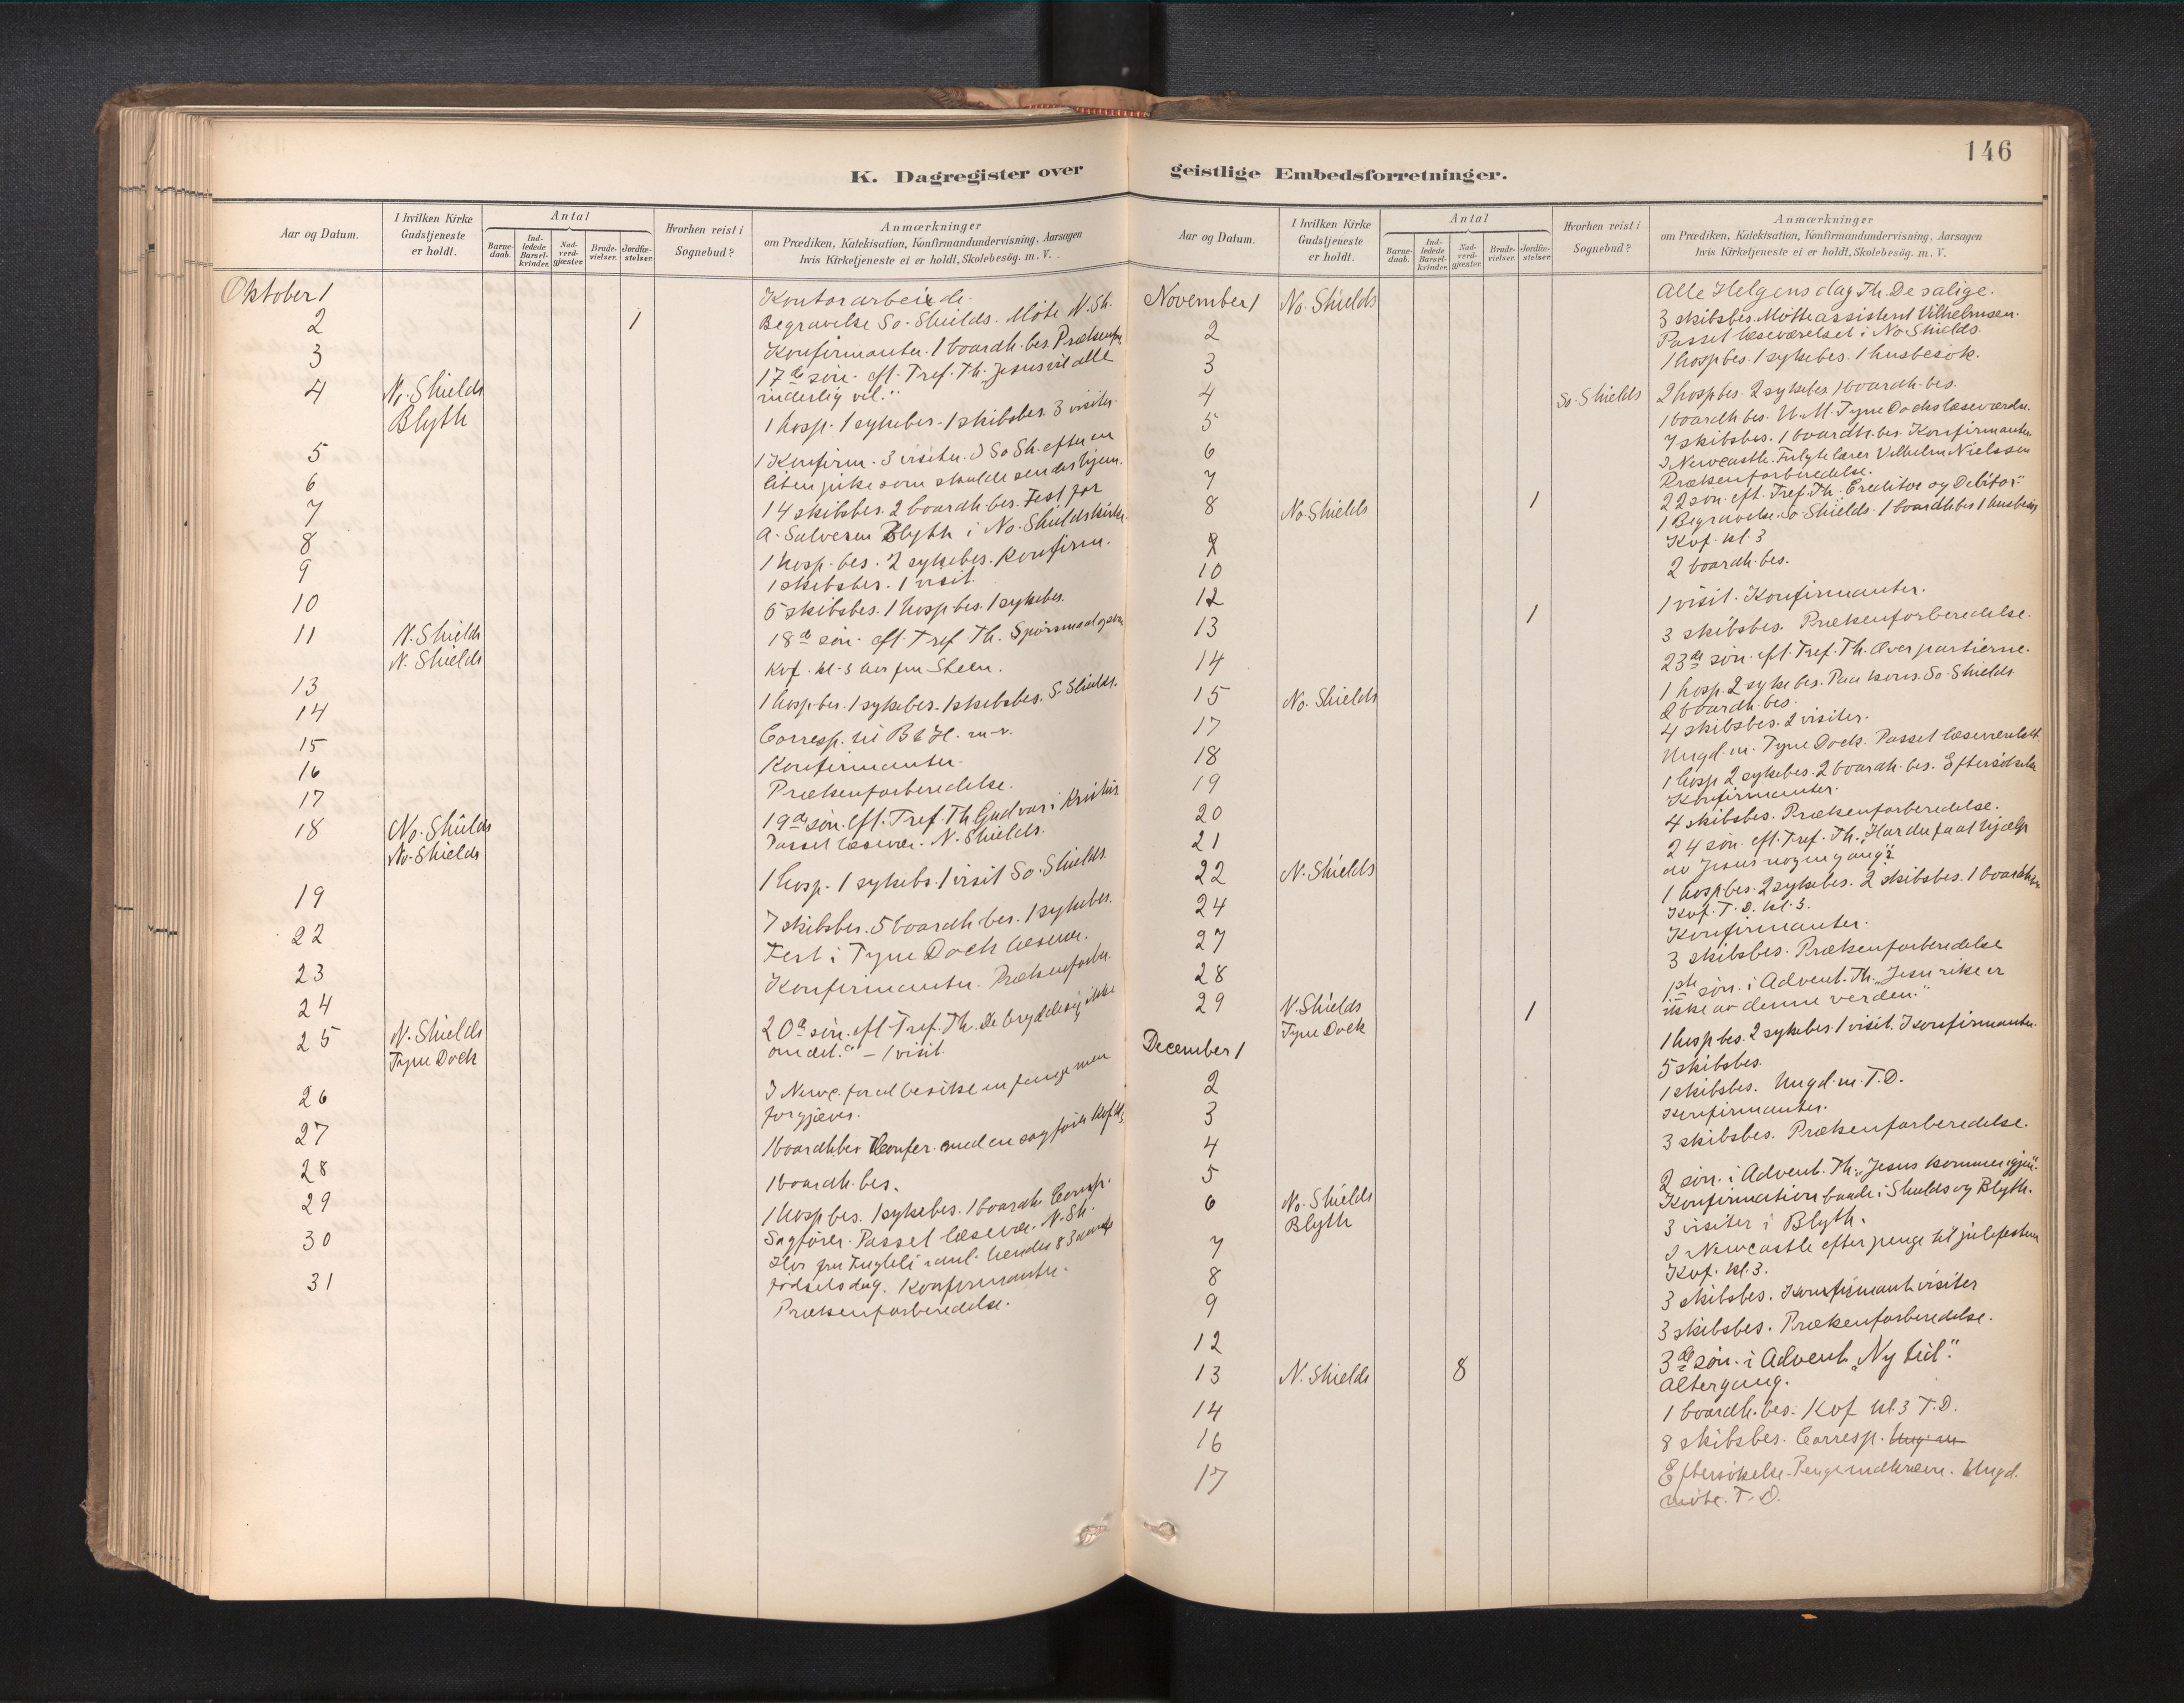 146
K. Dagregister over geistlige Embedsforretninger.
Aar og Datum.
I hvilken Kirke Gudstjeneste er holdt.
Antal
Barne-daab.
Ind-ledede Barsel-kvinder.
Nad-verd-gjæster.
Brude-vielser.
Jordfæ-stelser.
Hvorhen reist i Sognebud?
Anmærkninger
om Prædiken, Katekisation, Konfirmandundervisning, Aarsagen
hvis Kirketjeneste ei er holdt, Skolebesög. m. V.
Oktober 1 Kontorarbeide.
2 1 Begravelse So. Shields. Möte N. Sh.
3 Konfirmanter. 1 boardh. bes.
4 N. Shields 17de søn. eft. Tref. Th. Jesus vil alle
Blyth inderlig vel."
5 1 hosp. 1 sykebes. 1 skibsbes. 3 visiter.
6 1 Konfirm. 3 visiter. I So Sh. efter en
liten pike som skulde sendes hjem.
7 14 skibsbes. 2 boardh. bes. Fest for
A. Salvesen Blyth i No. Shields kirke.
8 1 hosp. bes. 2 sykebes. Konfirm.
9 1 skibsbes. 1 visit.
10 6 skibsbes. 1 hosp bes. 1 sykebes.
11 N. Shields 18de søn. eft. Tref. Th.
N. Shields
13 Kvf. kl. 3 hos fru Steen.
14 1 hosp bes. 1 sykebes. 1 skibsbes. S. Shields.
15 Corresp. til B & H. m. v.
16 Konfirmanter.
17 Prækenforberedelse.
18 No. Shields 19de søn. eft. Tref. Th. Gud var i Kristus
No. Shields Passet læsevær. N. Shields.
19 1 hosp. 1 sykebs. 1 visit So. Shields
22 7 skibsbes. 5 boardh. bes. 1 sykebes.
23 Fest i Tyne Dock læsevær.
24 Konfirmanter. Prækenforber.
25 N. Shields 20de søn. eft. Tref. Th. De brydde sig ikke
Tyne Dock om det." – 1 visit.
26 I Newc. for at besøke en fange men
forgjæves.
27 1 boardhbes Confer. med en sagfører Kvf
28 1 boardh. bes.
29 1 hosp bes. 1 sykebes. 1 boardh. Corresp.
30 Sagfører. Passet læsevær. N. Sh.
Hos fru hendes 83 aarige
31 födselsdag. Konfirmanter.
Prækenforberedelse.
Aar og Datum.
I hvilken Kirke Gudstjeneste er holdt.
Antal
Barne-daab.
Ind-ledede Barsel-kvinder.
Nad-verd-gjæster.
Brude-vielser.
Jordfæ-stelser.
Hvorhen reist i Sognebud?
Anmærkninger
om Prædiken, Katekisation, Konfirmandundervisning, Aarsagen
hvis Kirketjeneste ei er holdt, Skolebesög. m. V.
November 1 No. Shields Alle Helgens dag Th. De salige.
2 3 skibsbes. Møtte assistent Vilhelmsen.
Passet læseværelset i No Shields.
3 1 hosp bes. 1 sykebes. 1 husbesøk.
4 So. Shields 2 hosp bes. 2 sykebes. 1 boardh. bes.
5 1 boardh bes. U. M. Tyne Docks læseværelse.
6 7 skibsbes. 1 boardh. bes. Konfirmanter
7 I Newcastle. Vilhelm Nielssen
Prækenforberedelse.
8 No. Shields 1 22 søn. eft. Tref. Th. Creditor og Debitor."
1 Begravelse So. Shields. 1 boardhbes 1 husbesøk
9 Kvf. kl. 3
10 2 boardh. bes.
12 1 visit. Konfirmanter.
13 1 3 skibsbes. Prækenforberedelse.
14 23de søn. eft. Tref. Th. Overpartierne.
15 No. Shields 1 hosp. 2 sykebes. Paa kons. So. Shields
2 boardh. bes.
17 4 skibsbes. 2 visiter.
18 Ungd. m. Tyne Dock. Passet læseværelset.
19 1 hosp 2 sykebes. 2 boardh. bes. Eftersökelse
20 Konfirmanter.
21 4 skibsbes. Prækenforberedelse.
22 N. Shields 24 søn. eft. Tref. Th. „Har du faat hjælp
av Jesus nogengang"?
24 1 hosp bes. 2 sykebes. 2 skibsbes. 1 boardhbes
Kvf. T. D. kl. 3.
27 Konfirmanter.
28 3 skibsbes. Prækenforberedelse
29 N. Shields 1 1ste søn. i Advent. Th. „Jesu rike er
Tyne Dock ikke av denne verden."
December 1 1 hosp bes. 2 sykebes. 1 visit. Konfirmanter.
2 5 skibsbes.
3 1 skibsbes. Ungd. m. T. D.
4 Konfirmanter.
5 3 skibsbes. Prækenforberedelse.
6 No. Shields 2 søn. i Advent. Th. „Jesus kommer igjen".
Blyth Konfirmation baade i Shields og Blyth.
3 visiter i Blyth.
7 I Newcastle efter penge til julefesterne
8 Kvf. kl. 3.
9 3 skibsbes. Konfirmantvisiter
12 3 skibsbes. Prækenforberedelse.
13 N. Shields 8 3de søn. i Advent „Ny tid".
Altergang.
14 1 boardh. bes. Kvf kl. 3 T. D.
16 8 skibsbes. Corresp.
17 Eftersökelse. Ungd.
möte. T. D.